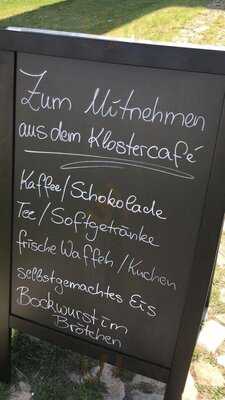 Zum Mitnehmen
aus dem Klostercafé
Kaffee/Schokolade
Tee/Softgetränke
frische Waffeln/Kuchen
selbstgemachtes Eis
Bockwurst im
Brötchen